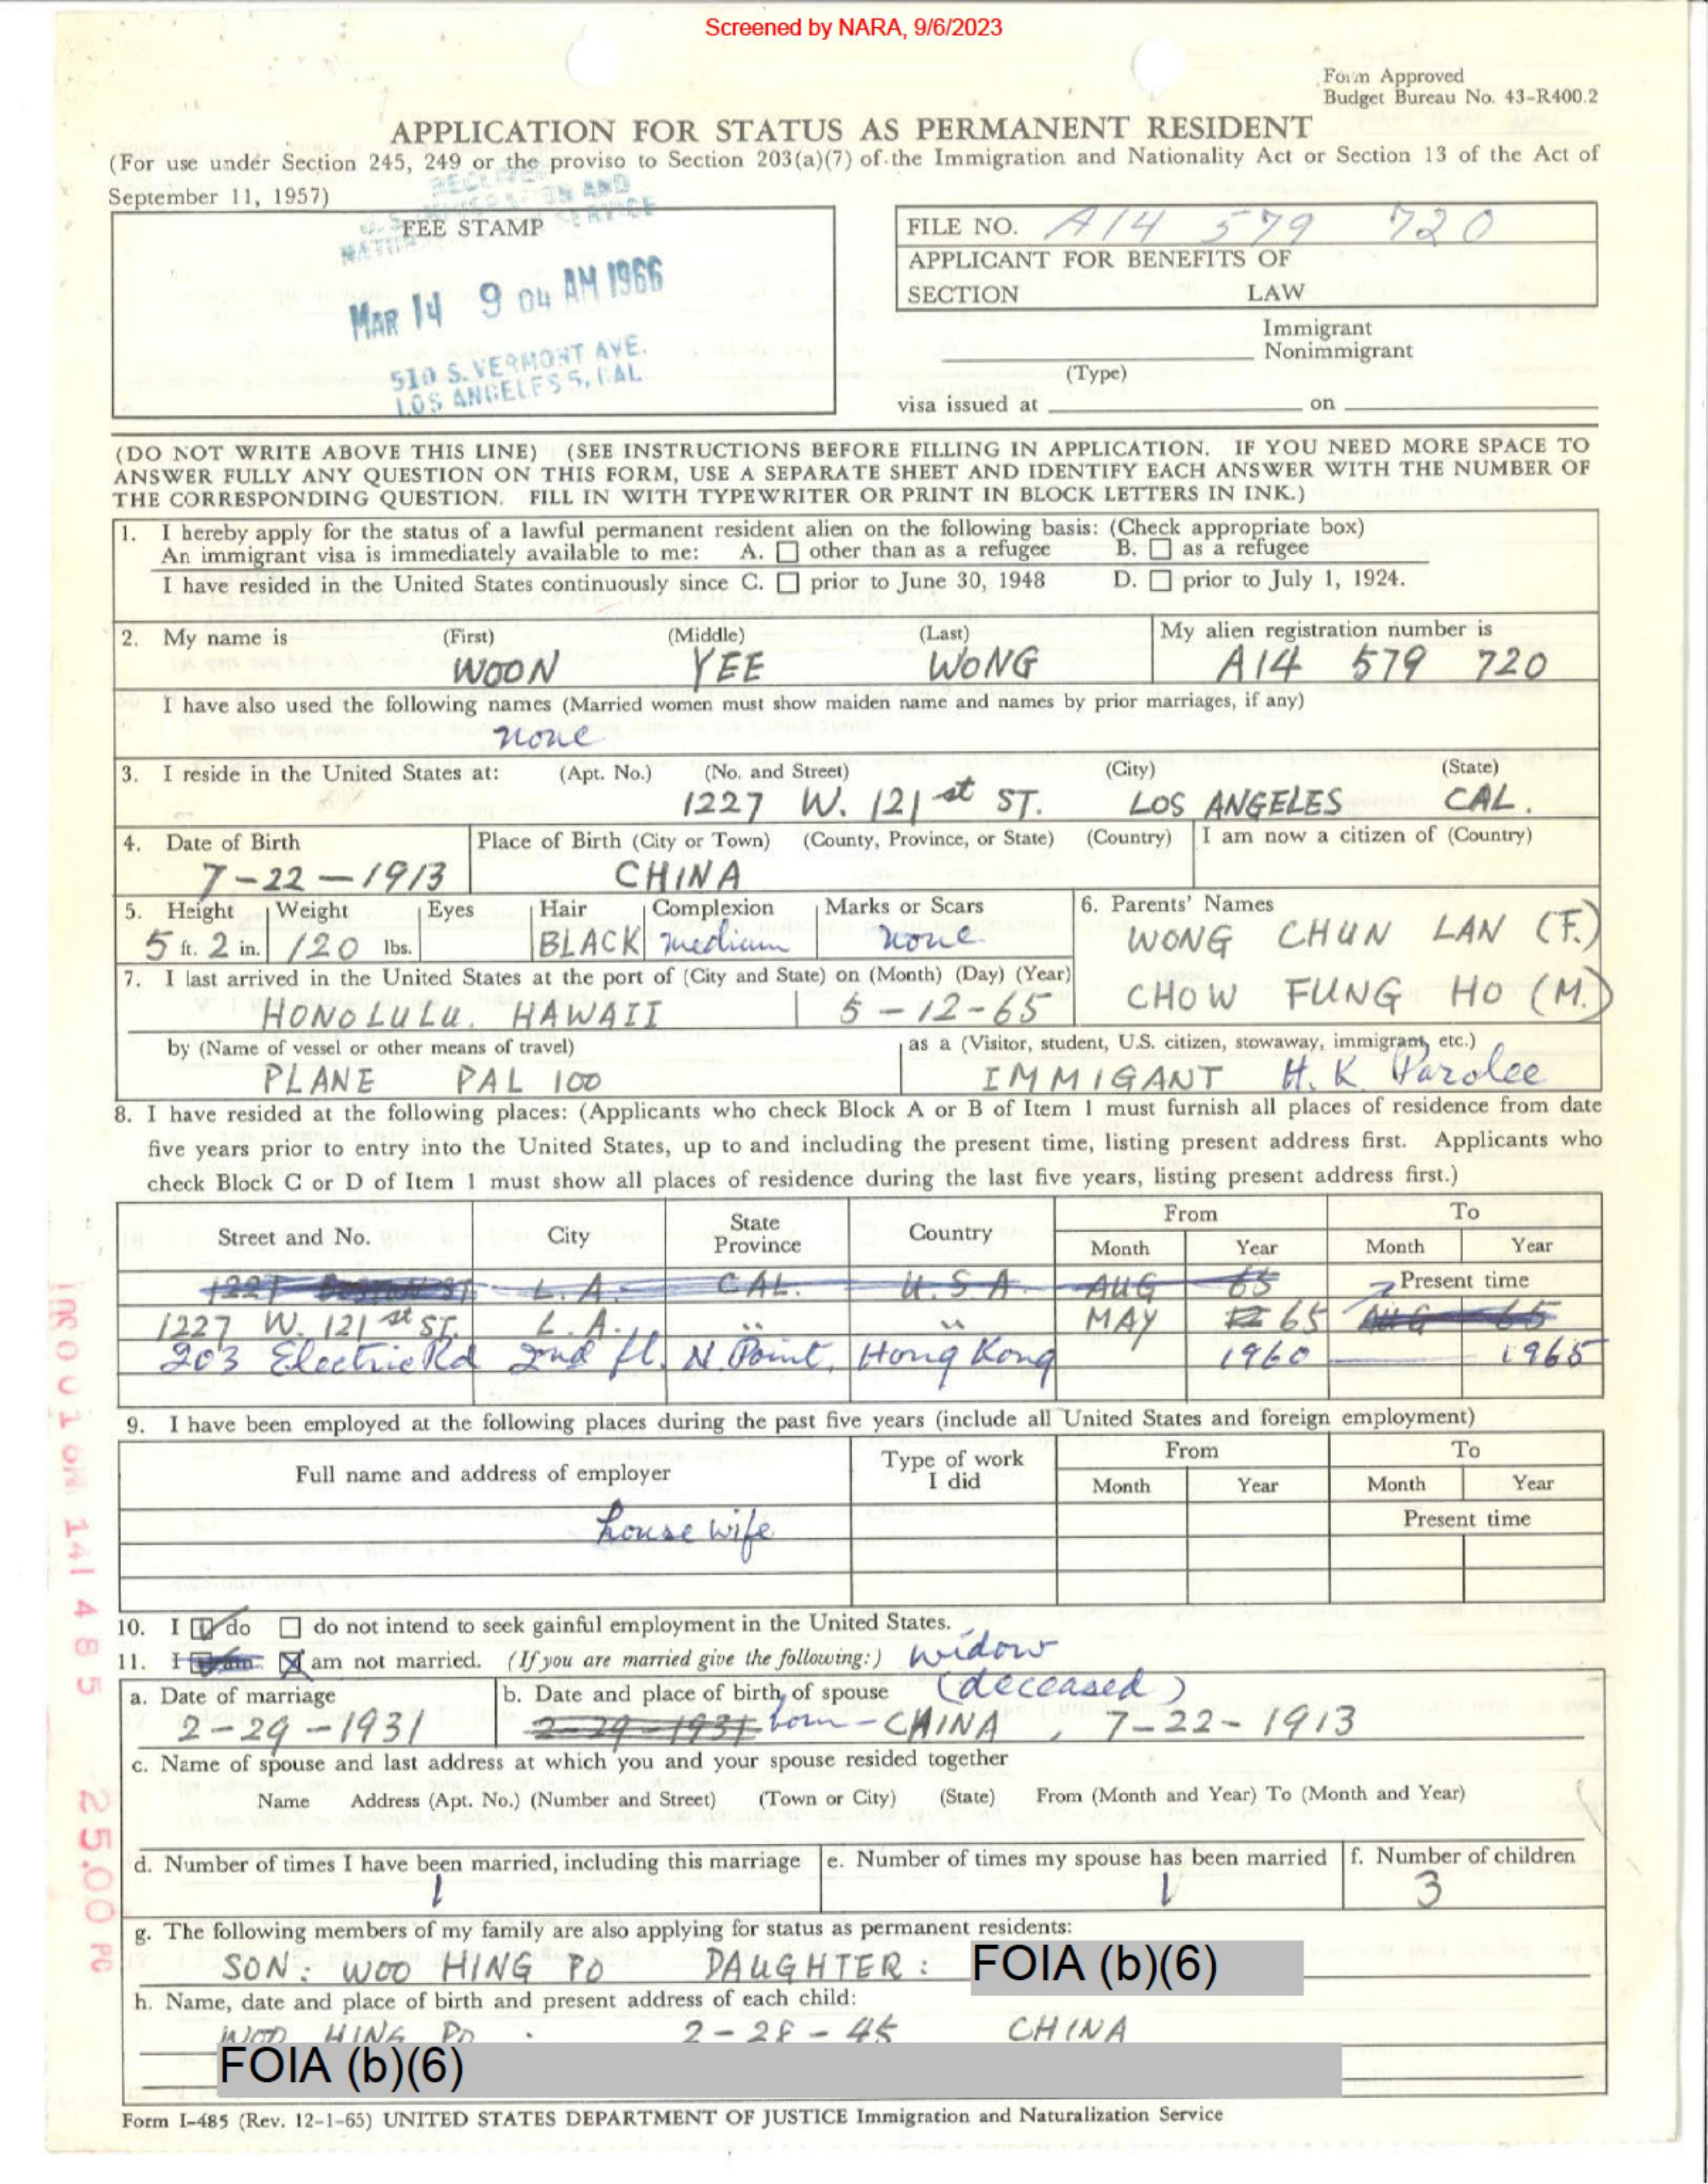 Screened by NARA, 9/6/2023
Form Approved
Budget Bureau No. 43-R400.2
APPLICATION FOR STATUS AS PERMANENT RESIDENT
(For use under Section 245, 249 or the proviso to Section 203(a)(7) of the Immigration and Nationality Act or Section 13 of the Act of
September 11, 1957)
FEE STAMP
MAR 14 9 04 AM 1966
510 S. VERMONT AVE.
LOS ANGELES 5, CAL
FILE NO. A14 579 720
APPLICANT FOR BENEFITS OF
SECTION LAW
Immigrant
Nonimmigrant
(Type)
visa issued at on
(DO NOT WRITE ABOVE THIS LINE) (SEE INSTRUCTIONS BEFORE FILLING IN APPLICATION. IF YOU NEED MORE SPACE TO
ANSWER FULLY ANY QUESTION ON THIS FORM, USE A SEPARATE SHEET AND IDENTIFY EACH ANSWER WITH THE NUMBER OF
THE CORRESPONDING QUESTION. FILL IN WITH TYPEWRITER OR PRINT IN BLOCK LETTERS IN INK.)
1. I hereby apply for the status of a lawful permanent resident alien on the following basis: (Check appropriate box)
An immigrant visa is immediately available to me: A. other than as a refugee B. as a refugee
I have resided in the United States continuously since C. prior to June 30, 1948 D. prior to July 1, 1924.
2. My name is (First) (Middle) (Last) My alien registration number is
WOON YEE WONG A14 579 720
I have also used the following names (Married women must show maiden name and names by prior marriages, if any)
none
3. I reside in the United States at: (Apt. No.) (No. and Street) (City) (State)
1227 W. 121 st ST. LOS ANGELES CAL.
4. Date of Birth Place of Birth (City or Town) (County, Province, or State) (Country) I am now a citizen of (Country)
7-22-1913 CHINA
5. Height Weight Eyes Hair Complexion Marks or Scars 6. Parents' Names
5 ft. 2 in. 120 lbs. BLACK medium none WONG CHUN LAN (F.)
7. I last arrived in the United States at the port of (City and State) on (Month) (Day) (Year)
CHOW FUNG HO (M.)
HONOLULU. HAWAII 5-12-65
by (Name of vessel or other means of travel) as a (Visitor, student, U.S. citizen, stowaway, immigrant, etc.)
PLANE PAL 100 IMMIGANT H.K Parolee
8. I have resided at the following places: (Applicants who check Block A or B of Item 1 must furnish all places of residence from date
five years prior to entry into the United States, up to and including the present time, listing present address first. Applicants who
check Block C or D of Item 1 must show all places of residence during the last five years, listing present address first.)
Street and No. City State Province Country From To
Month Year Month Year
1227 L.A. CAL. U.S.A. AUG 65 Present time
1227 W. 121 st ST. L.A. " " MAY 65 AUG 65
203 Electric Rd 2nd fl. N. Point, Hong Kong 1960 1965
9. I have been employed at the following places during the past five years (include all United States and foreign employment)
Full name and address of employer Type of work I did From To
Month Year Month Year
housewife Present time
10. I do do not intend to seek gainful employment in the United States.
11. I am am not married. (If you are married give the following:) widow
a. Date of marriage b. Date and place of birth of spouse (deceased)
2-29-1931 2-29-1931 born - CHINA, 7-22-1913
c. Name of spouse and last address at which you and your spouse resided together
Name Address (Apt. No.) (Number and Street) (Town or City) (State) From (Month and Year) To (Month and Year)
d. Number of times I have been married, including this marriage e. Number of times my spouse has been married f. Number of children
1 1 3
g. The following members of my family are also applying for status as permanent residents:
SON: WOO HING PO DAUGHTER: FOIA (b)(6)
h. Name, date and place of birth and present address of each child:
WOO HING PO. 2-28-45 CHINA
FOIA (b)(6)
Form I-485 (Rev. 12-1-65) UNITED STATES DEPARTMENT OF JUSTICE Immigration and Naturalization Service